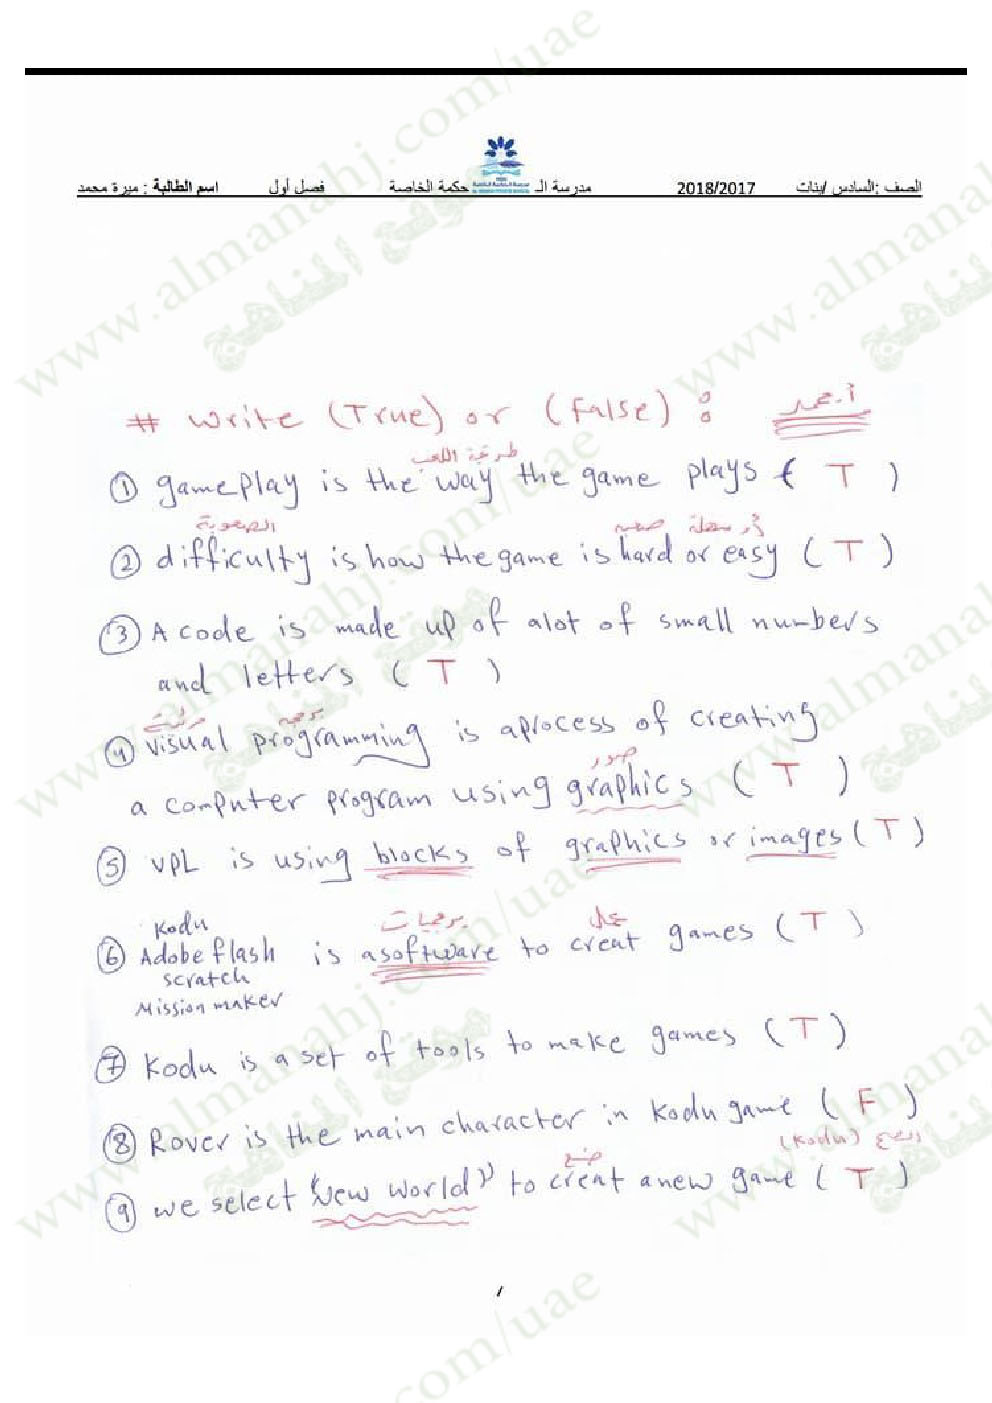 الصف :السادس /بنات 2018/2017 مدرسة الـ حكمة الخاصة فصل أول اسم الطالبة : ميرة محمد
# write (True) or (false) :
طريقة اللعب
① gameplay is the way the game plays ( T )
الصعوبة صعبه أو سهلة
② difficulty is how the game is hard or easy ( T )
③ A code is made up of alot of small numbers
and letters ( T )
مرئية برمجه
④ visual programming is aprocess of creating
صور
a computer program using graphics ( T )
⑤ VPL is using blocks of graphics or images ( T )
Kodu برمجيات
⑥ Adobe flash is a software to creat games ( T )
scratch
Mission maker
⑦ Kodu is a set of tools to make games ( T )
⑧ Rover is the main character in Kodu game ( F )
(Kodu)
⑨ we select "New world" to creat a new game ( T )
www.almanahj.com/uae
موقع المناهج